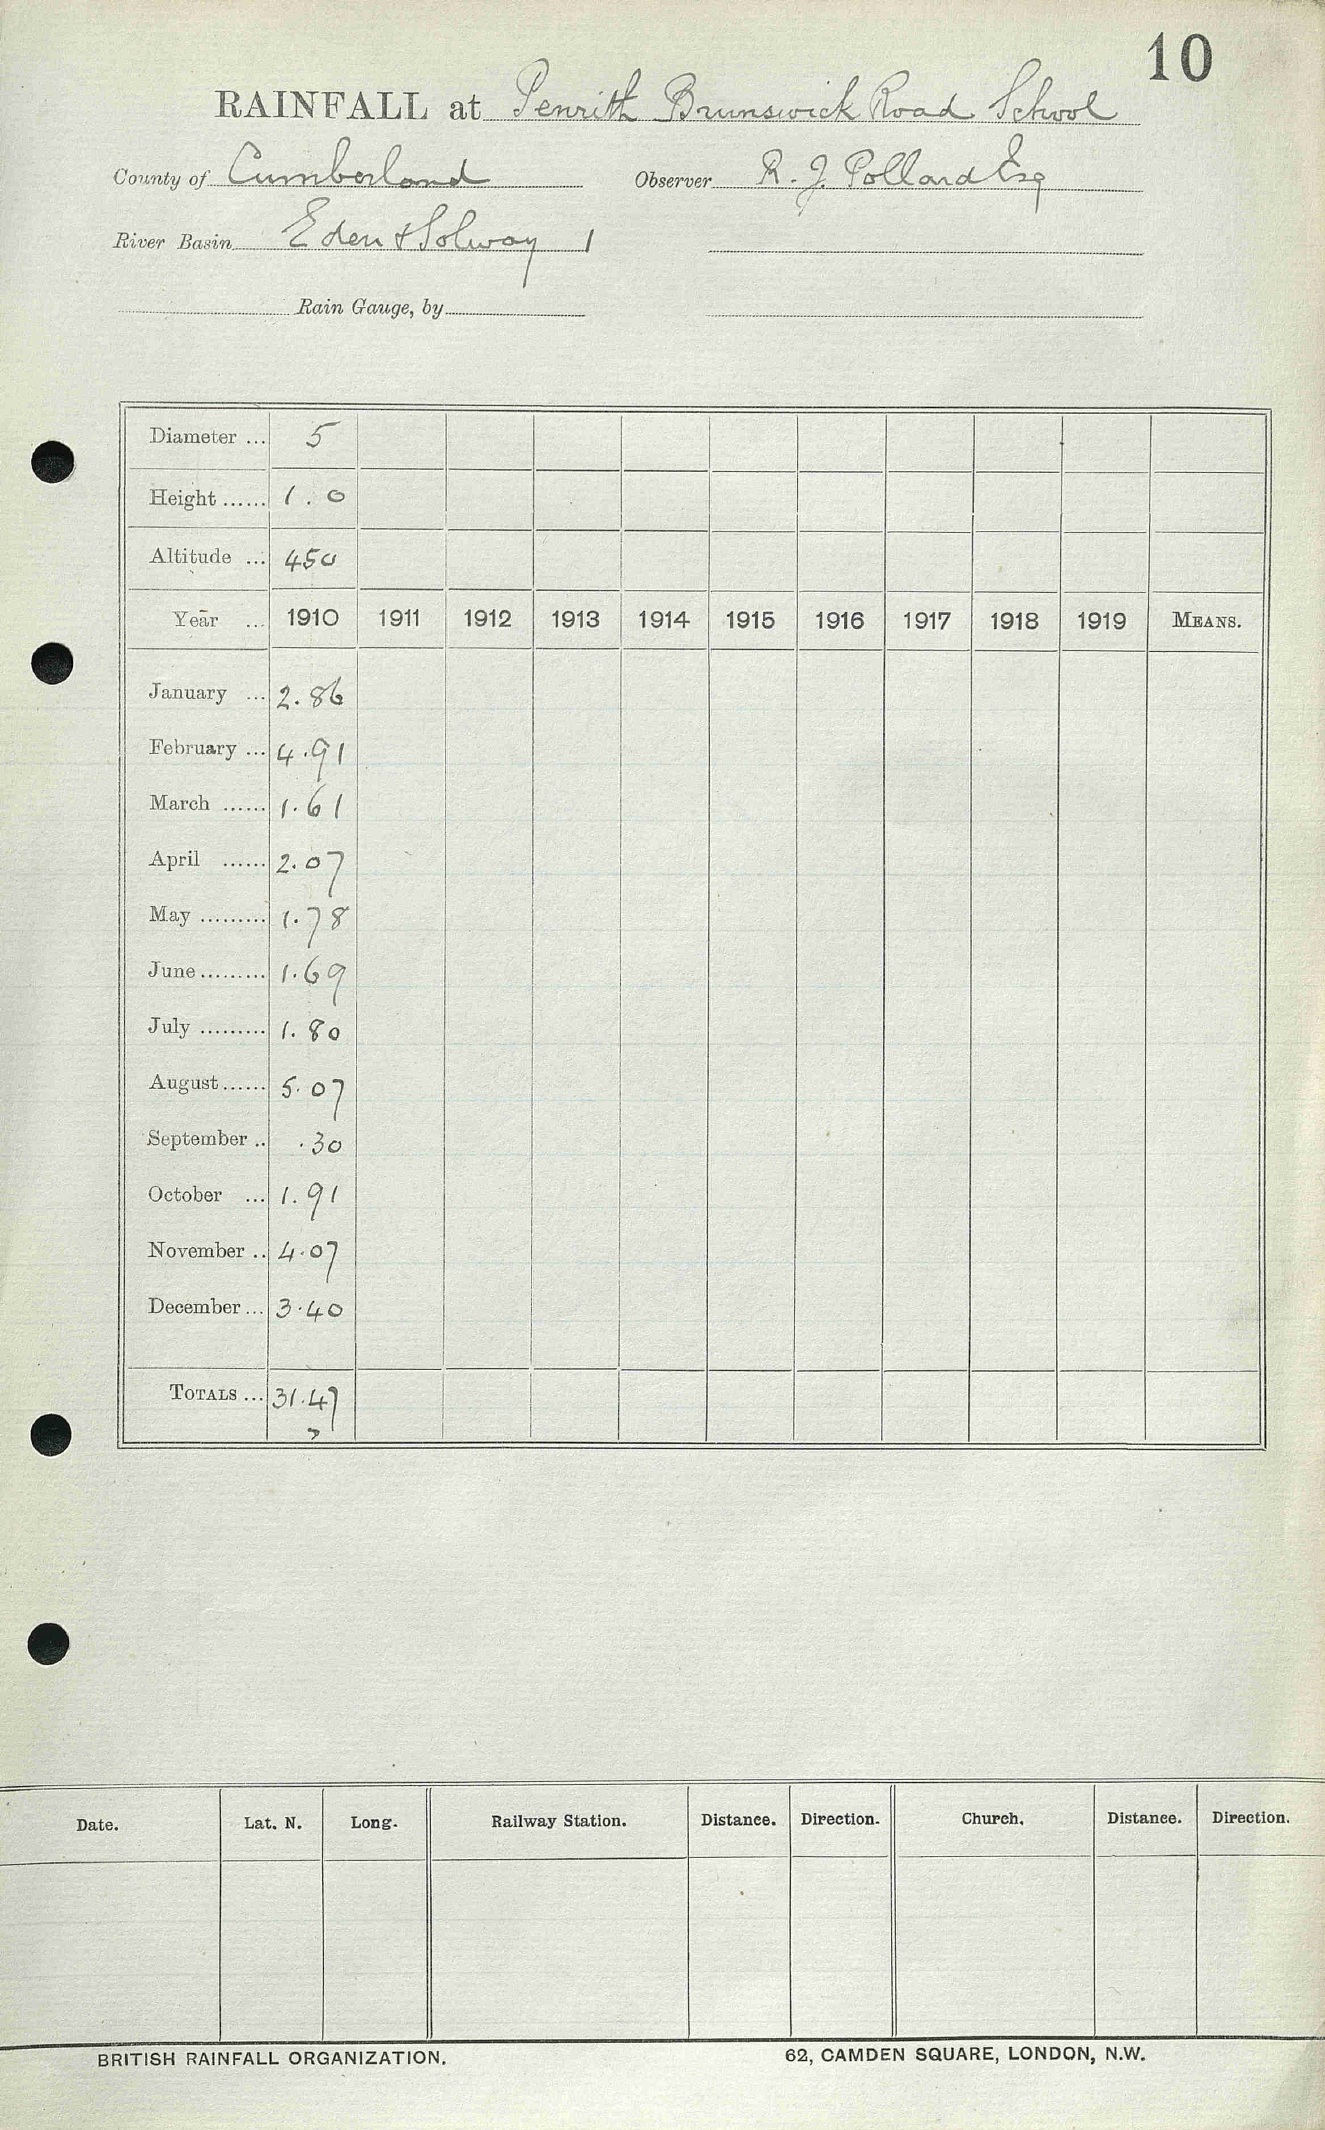 10
RAINFALL at Penrith Brunswick Road School
County of Cumberland Observer R. J. Pollard Esq
River Basin Eden & Solway 1
Rain Gauge, by
Diameter ... 5
Height ...... 1.0
Altitude ... 450
Year ... 1910 1911 1912 1913 1914 1915 1916 1917 1918 1919 MEANS.
January ... 2.86
February ... 4.91
March ...... 1.61
April ...... 2.07
May ......... 1.78
June ......... 1.69
July ......... 1.80
August ...... 5.07
September .. .30
October ... 1.91
November .. 4.07
December ... 3.40
TOTALS ... 31.47
Date. Lat. N. Long. Railway Station. Distance. Direction. Church. Distance. Direction.
BRITISH RAINFALL ORGANIZATION. 62, CAMDEN SQUARE, LONDON, N.W.